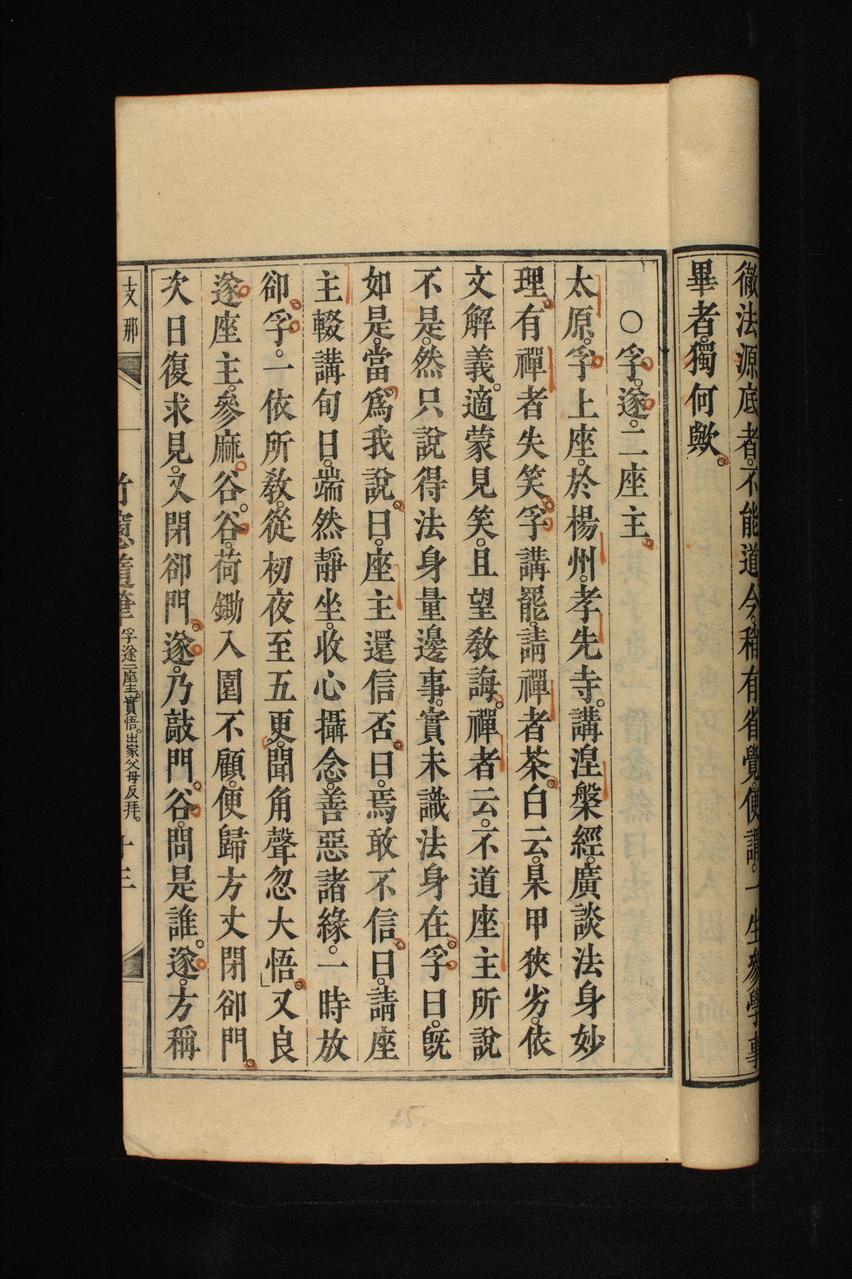 徹法源底者。不能道。今稍有省覺。便謂一生參學事
畢者。獨何歟。
○孚。遂。二座主。
太原。孚上座。於楊州。孝先寺。講涅槃經。廣談法身妙
理。有禪者失笑。孚講罷。請禪者茶。白云。杲甲狹劣。依
文解義。適蒙見笑。且望敎誨。禪者云。不道座主所說
不是。然只說得法身量邊事。實未識法身在。孚曰。旣
如是。當爲我說。曰。座主還信否。曰。焉敢不信。曰。請座
主輟講旬日。端然靜坐。收心攝念。善惡諸緣。一時放
卻。孚。一依所敎。從初夜至五更。聞角聲忽大悟。又良
遂座主。參麻。谷。谷。荷鋤入園不顧。便歸方丈閉卻門。
次日復求見。又閉卻門。遂。乃敲門。谷。問是誰。遂。方稱
支那
竹窻隨筆 孚遂二座主。實悟。出家父母反拜。 十三
25